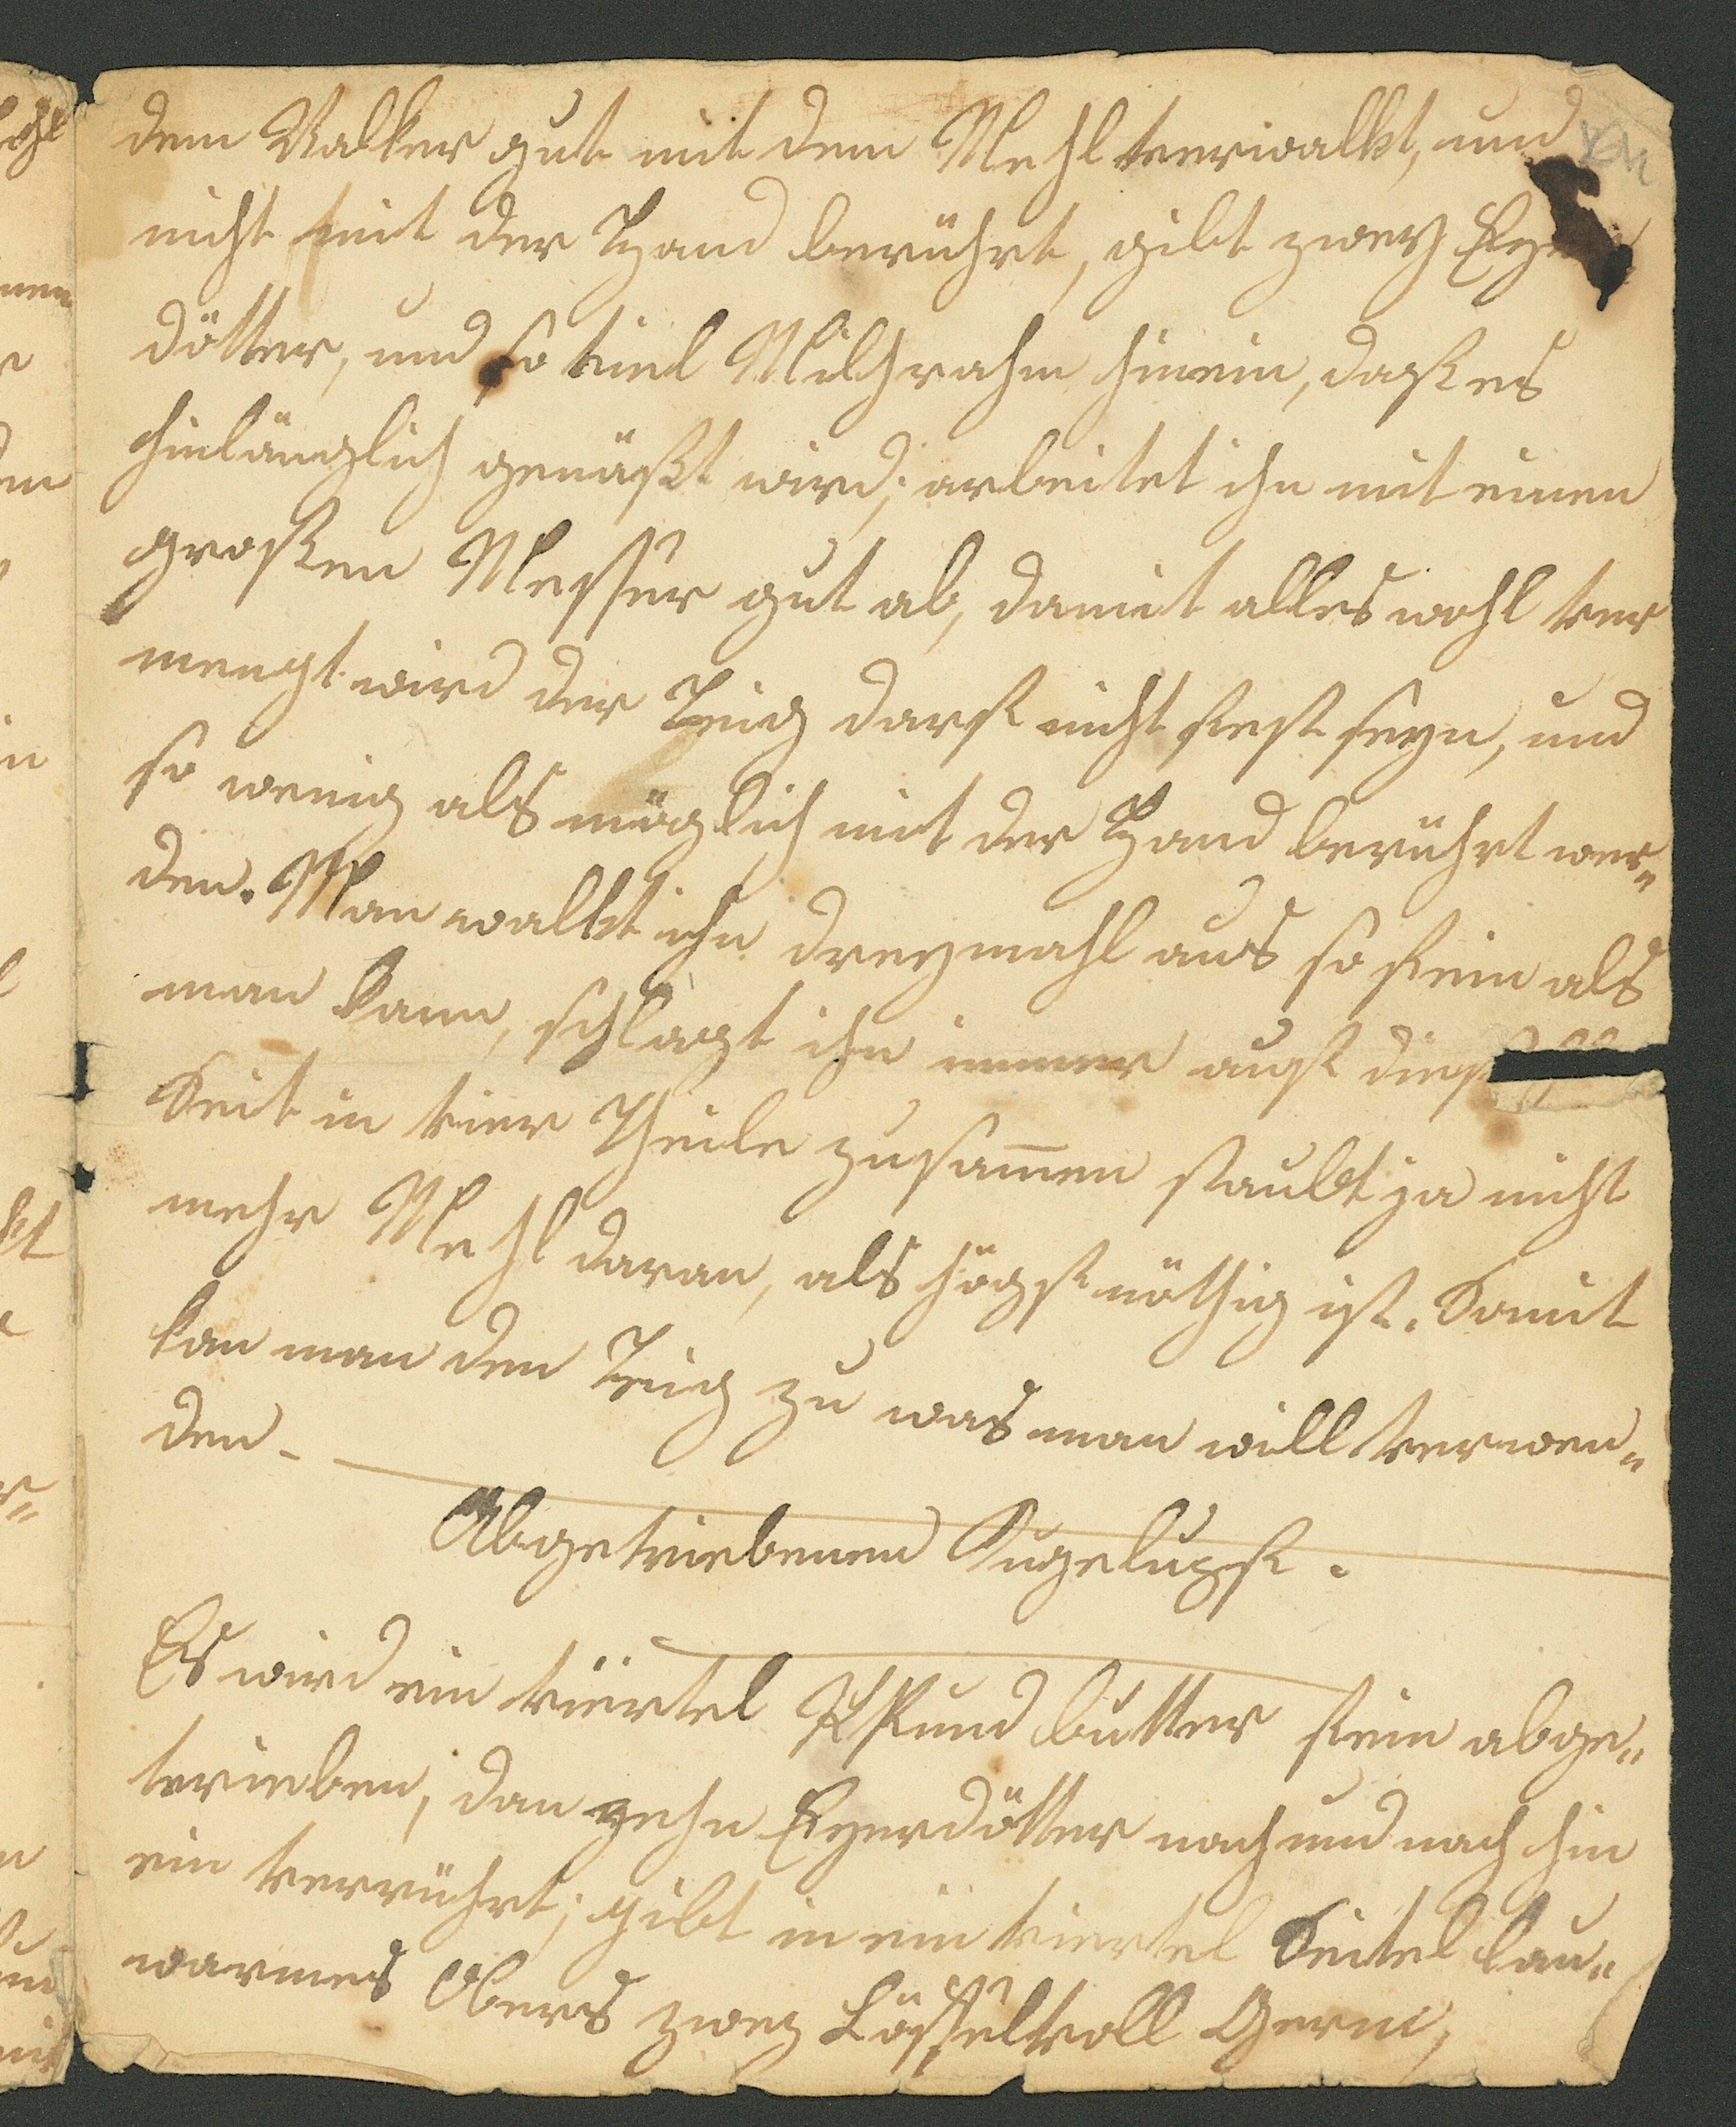 dem Walker gut mit dem Mehl verwalkt, und
nicht mit der Hand berührt, gibt zwey Eyer
dötter, und so viel Milchrahm hinein, daß es
hinlänglich genäßt wird; arbeitet ihn mit einen
großen Messer gut ab, damit alles wohl ver
mengt wird der Teig darf nicht fest seyn, und
so wenig als möglich mit der Hand berührt wer„
den. Man walkt ihn dreymahl aus so fein als
man kann, schlagt ihn immer auf
Seit in vier Theile zusam̄en staubt ja nicht
mehr Mehl daran, als högst nöthig ist. Somit
kan man den Teig zu was man will verwen„
den.
Abgetriebenen Gugelupf.
Es wird ein viertel Pfund butter fein abge„
trieben, dan zehn Eyerdötter nach und nach hin
ein verrührt; gibt in ein viertel Seitel lau„
warmes Obers zwey Löffelvoll Germ,